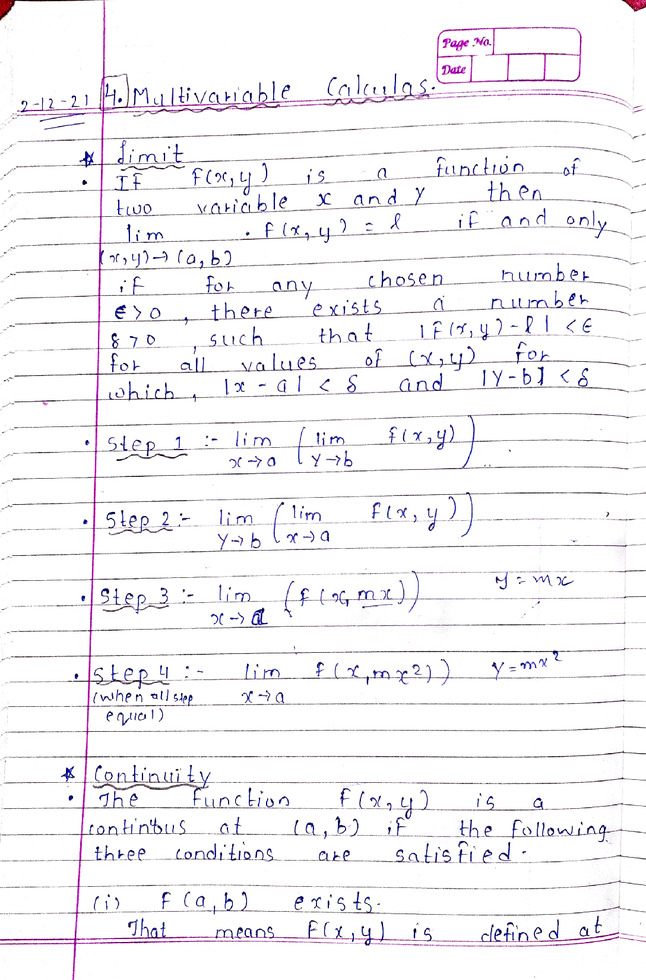 Page No.
Date
2-12-21 4. Multivariable Calculas.
* Limit
• If f(x,y) is a function of
two variable x and y then
lim . f(x,y) = l if and only
(x,y)→(a,b)
if for any chosen number
ϵ>0, there exists a number
δ>0, such that |f(x,y)-l| <ϵ
for all values of (x,y) for
which, |x-a| < δ and |y-b| < δ
• Step 1 :- lim (lim f(x,y))
x→a y→b
• Step 2:- lim (lim f(x,y))
y→b x→a
• Step 3 :- lim (f(x,mx)) y=mx
x→a
• Step 4 :- lim f(x,mx²)) y=mx²
(when all step x→a
equal)
* Continuity
• The function f(x,y) is a
contintous at (a,b) if the following
three conditions are satisfied.
(i) f(a,b) exists.
That means f(x,y) is defined at